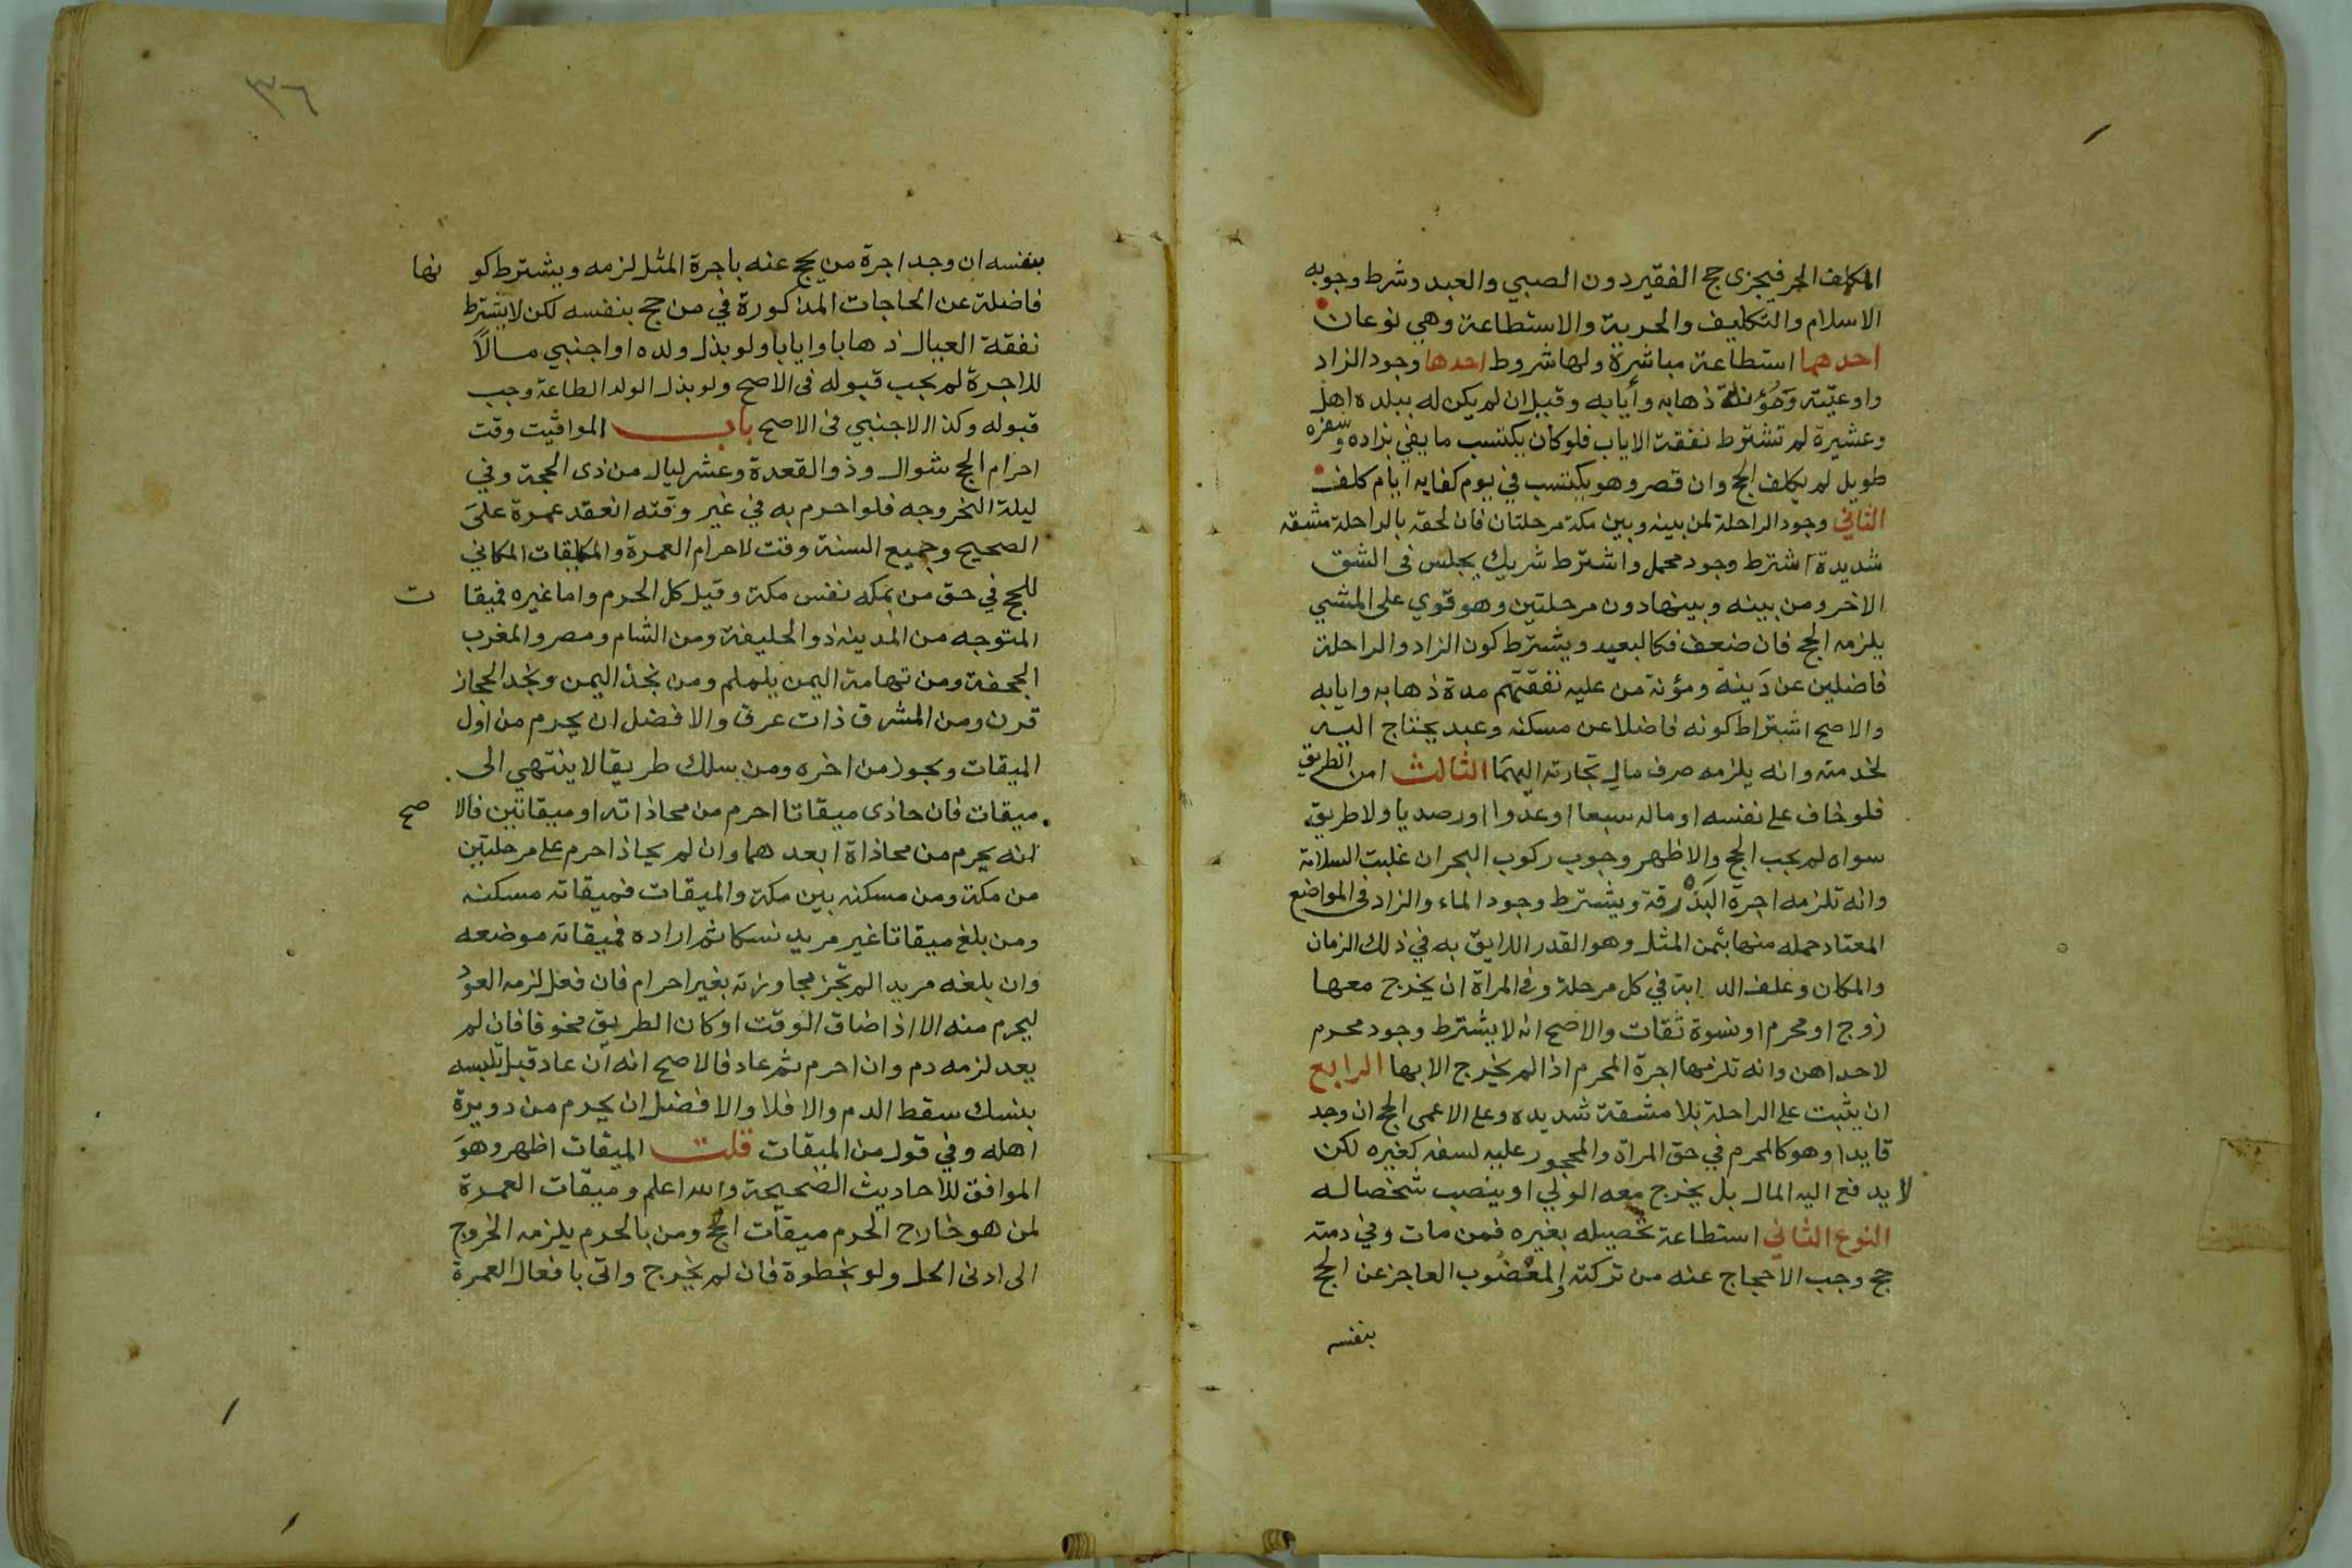 المكلف الحر فيجزى حج الفقير دون الصبي والعبد وشرط وجوبه
الاسلام والتكليف والحرية والاستطاعة وهي نوعان
احدهما استطاعة مباشرة ولها شروط احدها وجود الزاد
واوعيته ومؤنة ذهابه وأيابه وقيل ان لم يكن له ببلده اهل
وعشيرة لم تشترط نفقة الاياب فلو كان يكتسب ما يفي بزاده وسفره
طويل لم يكلف الحج وان قصر وهو يكتسب في يوم كفاية ايام كلف
الثاني وجود الراحلة لمن بينه وبين مكة مرحلتان فان لحقه بالراحلة مشقه
شديدة اشترط وجود محمل واشترط شريك يجلس فى الشق
الاخر ومن بينه وبينها دون مرحلتين وهو قوي على المشي
يلزمه الحج فان ضعف فكالبعيد ويشترط كون الزاد والراحلة
فاضلين عن دَينه ومؤنة من عليه نفقتهم مدة ذهابه وايابه
والاصح اشتراط كونه فاضلا عن مسكنه وعبد يحتاج اليه
لخدمته وانه يلزمه صرف مال تجارته اليهما الثالث امن الطريق
فلو خاف على نفسه او ماله سبعا او عدوا او رصديا ولا طريق
سواه لم يجب الحج والاظهر وجوب ركوب البحر ان غلبت السلامة
وانه تلزمه اجرة البَذْرقة ويشترط وجود الماء والزاد فى المواضع
المعتاد حمله منها بثمن المثل وهو القدر اللايق به في ذلك الزمان
والمكان وعلف الدابة في كل مرحلة وفى المراة ان يخرج معها
زوج او محرم او نسوة ثقات والاصح انه لا يشترط وجود محرم
لاحداهن وانه تلزمها اجرة المحرم اذا لم يخرج الا بها الرابع
ان يثبت على الراحلة بلا مشقة شديده وعلى الاعمى الحج ان وجد
قايدا وهو كالمحرم في حق المراة والمحجور عليه لسفه كغيره لكن
لا يدفع اليه المال بل يخرج معه الولي او ينصب شخصا له
النوع الثاني استطاعة تحصيله بغيره فمن مات وفي ذمته
حج وجب الاحجاج عنه من تركته والمعضوب العاجز عن الحج
بنفسه
٣٦
بنفسه ان وجد اجرة من يحج عنه باجرة المثل لزمه ويشترط كونها
فاضلة عن الحاجات المذكورة في من حج بنفسه لكن لا يشترط
نفقة العيال ذهابا وايابا ولو بذل ولده او اجنبي مالاً
للاجرة لم يجب قبوله فى الاصح ولو بذل الولد الطاعة وجب
قبوله وكذا الاجنبي فى الاصح باب المواقيت وقت
احرام الحج شوال وذو القعدة وعشر ليال من ذى الحجة وفي
ليلة النحر وجه فلو احرم به في غير وقته انعقد عمرة على
الصحيح وجميع السنة وقت لاحرام العمرة والميقات المكاني
للحج في حق من بمكه نفس مكة وقيل كل الحرم واما غيره فميقات
المتوجه من المدينة ذو الحليفة ومن الشام ومصر والمغرب
الجحفة ومن تهامة اليمن يلملم ومن نجد اليمن ونجد الحجاز
قرن ومن المشرق ذات عرق والافضل ان يحرم من اول
الميقات ويجوز من اخره ومن سلك طريقا لا ينتهي الى
ميقات فان حاذى ميقاتا احرم من محاذاته او ميقاتين فالاصح
انه يحرم من محاذاة ابعدهما وان لم يحاذ احرم على مرحلتين
من مكة ومن مسكنه بين مكة والميقات فميقاته مسكنه
ومن بلغ ميقاتا غير مريد نسكا ثم اراده فميقاته موضعه
وان بلغه مريدا لم تجز مجاوزته بغير احرام فان فعل لزمه العود
ليحرم منه الا اذا ضاق الوقت او كان الطريق مخوفا فان لم
يعد لزمه دم وان احرم ثم عاد فالاصح انه ان عاد قبل تلبسه
بنسك سقط الدم والا فلا والافضل ان يحرم من دويرة
اهله وفي قول من الميقات قلت الميقات اظهر وهوَ
الموافق للاحاديث الصحيحة والله اعلم وميقات العمرة
لمن هو خارج الحرم ميقات الحج ومن بالحرم يلزمه الخروج
الى ادنى الحل ولو بخطوة فان لم يخرج واتى بافعال العمرة